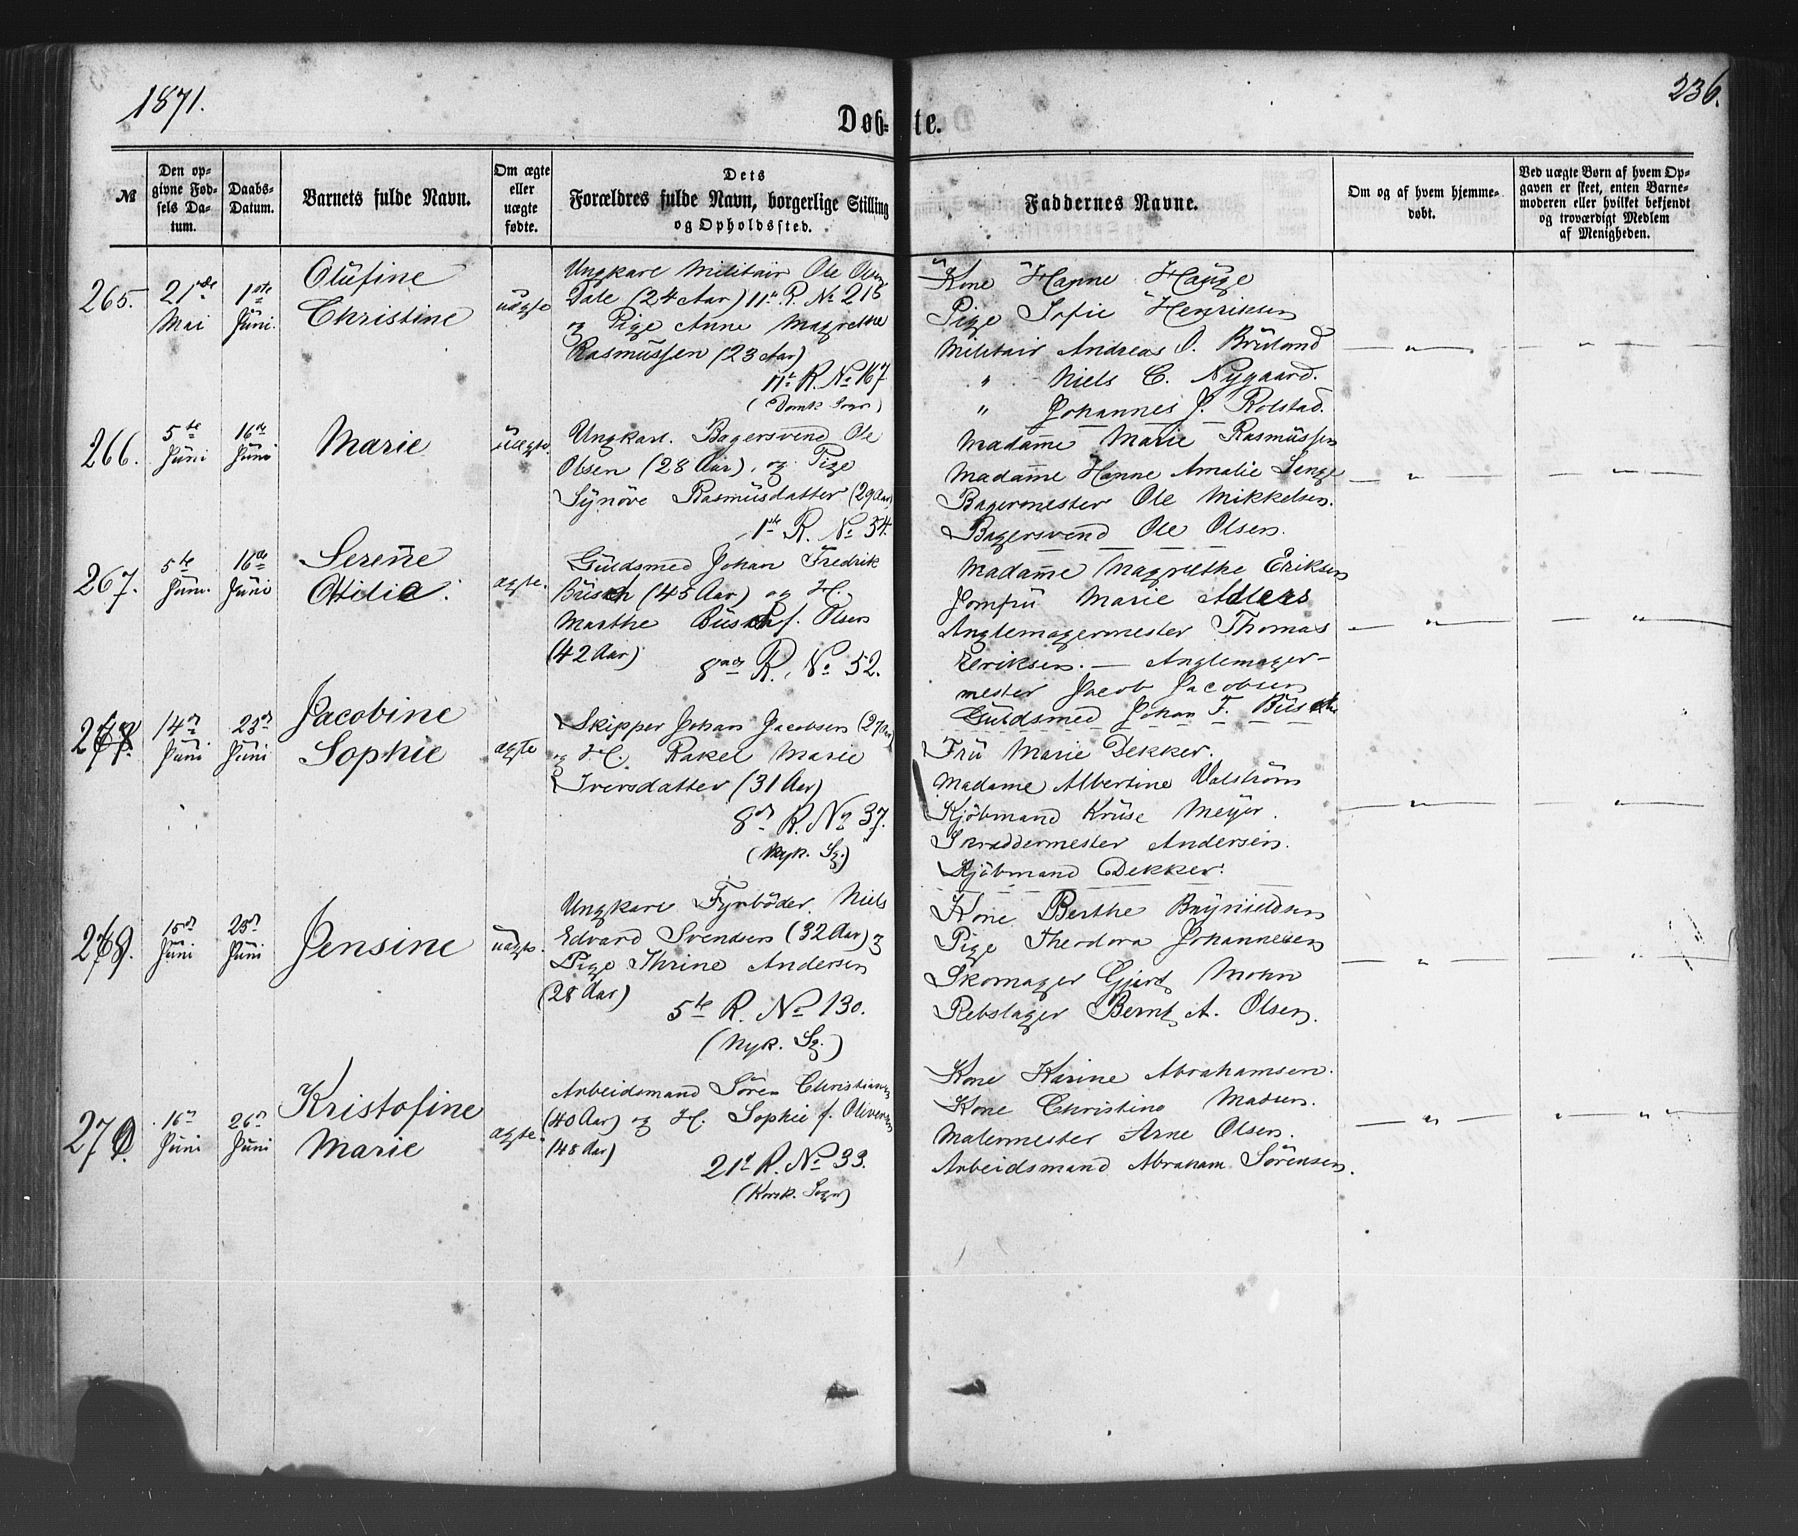 1871.
236.
Døb-te.
№
Den op-
givne Fød-
sels Da-
tum.
Daabs-
Datum.
Barnets fulde Navn.
Om ægte
eller
uægte
fødte.
Dets
Forældres fulde Navn, borgerlige Stilling
og Opholdssted.
Faddernes Navne.
Om og af hvem hjemme-
døbt.
Ved uægte Børn af hvem Op-
gaven er skeet, enten Barne-
moderen eller hvilket bekjendt
og troværdigt Medlem
af Menigheden.
265.
21de
Mai
1ste
Juni.
Olufine
Christine
uægte
Ungkarl Militair Ole Olsen
Dale (24 Aar) 11te R. No 216
og Pige Anne Magrethe
Rasmussen (23 Aar)
11te R. No 167
(Domk. Sogn)
Kone Hanne Hauge
Pige Sofie Henriksen
Militair Andreas O. Bruland
" Niels C. Nygaard.
" Johannes J. Rolstad.
— " —
— " —
266.
5te
Juni
16de
Juni
Marie
uægte.
Ungkarl. Bagersvend Ole
Olsen (28 Aar), og Pige
Synöve Rasmusdatter (29 Aar)
1ste R. No 54.
Madame Marie Rasmussen
Madame Hanne Amalie Lenge
Bagermester Ole Mikkelsen.
Bagersvend Ole Olsen.
— " —
— " —
267.
5te
Juni.
16de
Juni
Serene
Otilie.
ægte.
Guldsmed Johan Fredrik
Busch (45 Aar) og H.
Marthe Busch f. Olsen
(42 Aar)
8de R. No 52.
Madame Magrethe Eriksen
Jomfru Marie Adlers
Anglemagermester Thomas
Eriksen. — Anglemager-
mester Jacob Jacobsen
Guldsmed Johan F. Busch
— " —
— " —
268.
14de
Juni
23de
Juni
Jacobine
Sophie
ægte
Skipper Johan Jacobsen (27 Aar)
og H. Rakel Marie
Iversdatter (31 Aar)
8de R. No 37.
(Nyk. Sg.)
Fru Marie Dekker.
Madame Albertine Valström
Kjöbmand Kruse Meyer.
Skræddermester Andersen.
Kjöbmand Dekker.
— " —
— " —
269.
15de
Juni
25de
Juni
Jensine
uægte.
Ungkarl Fyrböder Niels
Edvard Svendsen (32 Aar) og
Pige Thrine Andersen
(28 Aar)
5te R. No 130.
(Nyk. Sg.)
Kone Berthe Brynildsen
Pige Theodora Johannesen
Skomager Gjert Mohn
Rebslager Bernt A. Olsen.
— " —
— " —
270.
16de
Juni
26de
Juni
Kristofine
Marie
ægte.
Arbeidsmand Sören Christiansen
(40 Aar) og H. Sophie f. Oliversen
(48 Aar)
21de R. No 33.
(Korsk. Sogn)
Kone Karine Abrahamsen.
Kone Christine Madsen.
Malermester Arne Olsen.
Arbeidsmand Abraham Sörensen.
— " —
— " —